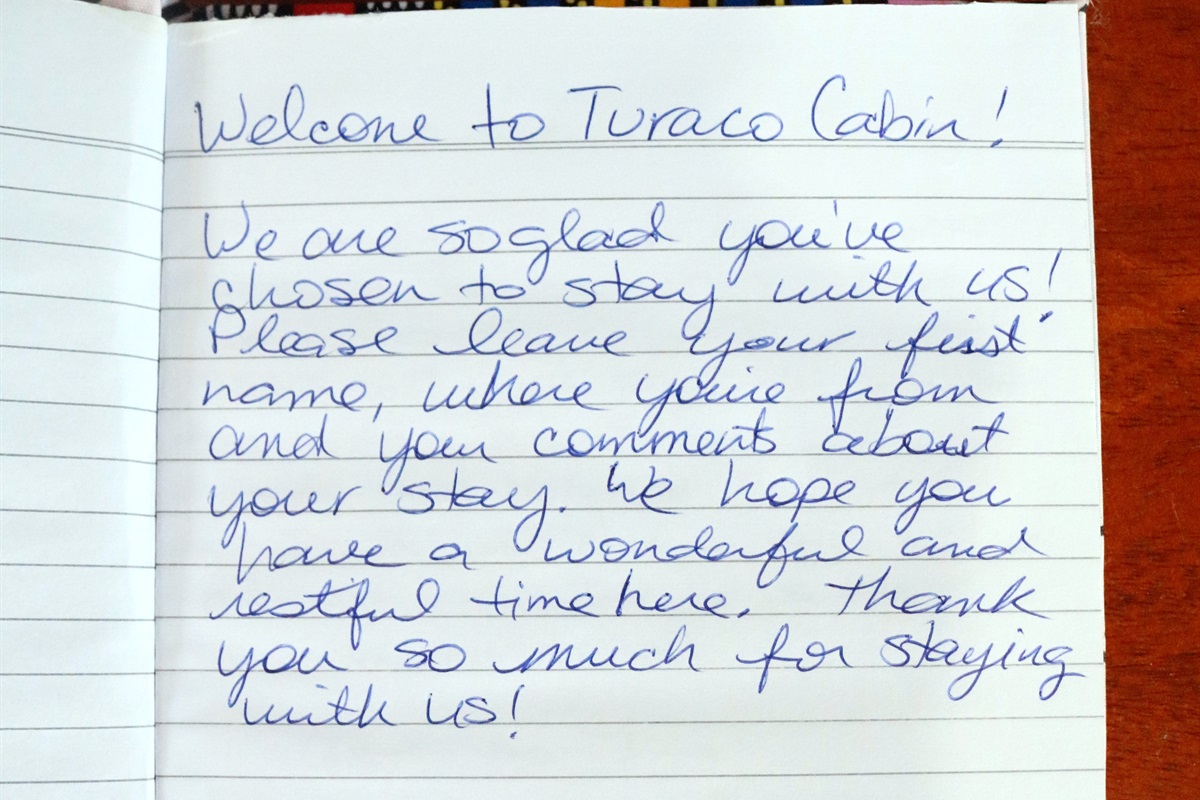 Welcome to Turaco Cabin!
We are so glad you've
chosen to stay with us!
Please leave your first
name, where you're from
and your comments about
your stay. We hope you
have a wonderful and
restful time here. Thank
you so much for staying
with us!